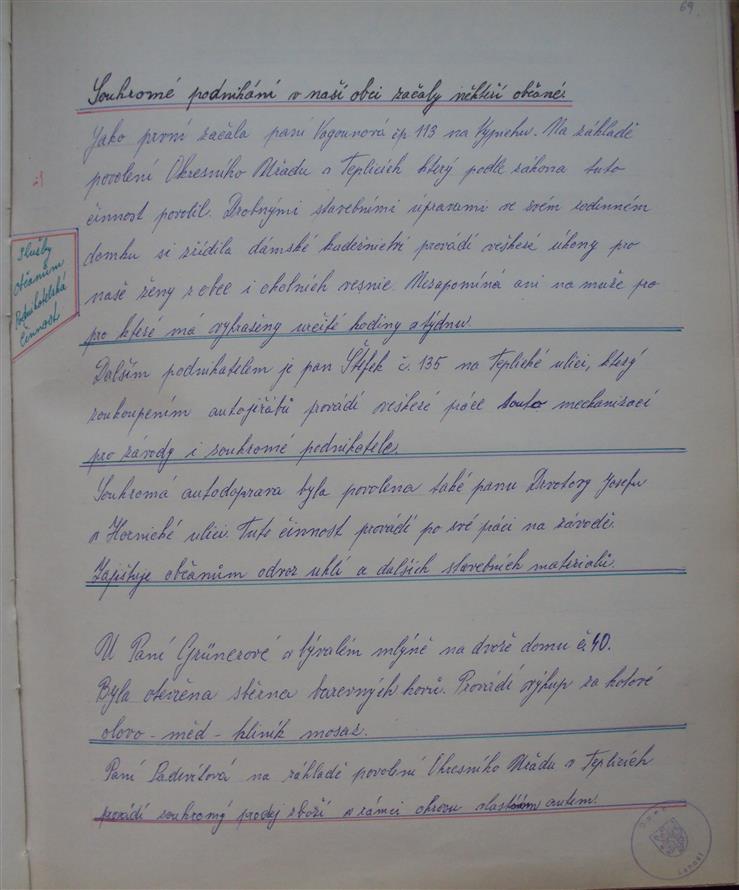 69.
Soukromé podnikání v naší obci začaly někteří občané.
Jako první začala paní Vagounová čp. 113 na Výměhu. Na základě
povolení Okresního Úřadu v Teplicích který podle zákona tuto
činnost povolil. Drobnými stavebními úpravami ve svém rodinném
domku si zřídila dámské kadeřnictví provádí veškeré úkony pro
naše ženy z obce i okolních vesnic. Nezapomíná ani na muže pro
pro které má vyhrazeny určité hodiny v týdnu.
Služby
občanům
Podnikatelská
činnost
Dalším podnikatelem je pan Štefek č. 135 na Teplické ulici, který
zakoupením autojeřábů provádí veškeré práce touto mechanizací
pro závody i soukromé podnikatele.
Soukromá autodoprava byla povolena také panu Drvotovy Josefu
v Hornické ulici. Tuto činnost provádí po své práci na závodě.
Zajišťuje občanům odvoz uhlí a dalších stavebních materialů.
U Paní Grünerové v bývalém mlýně na dvoře domu č. 40.
Byla otevřena sběrna barevných kovů. Provádí výkup za hotové
olovo - měd - hliník mosaz.
Paní na základě povolení Okresního Úřadu v Teplicích
provádí soukromý prodej zboží v rámci okresu vlastním autem.